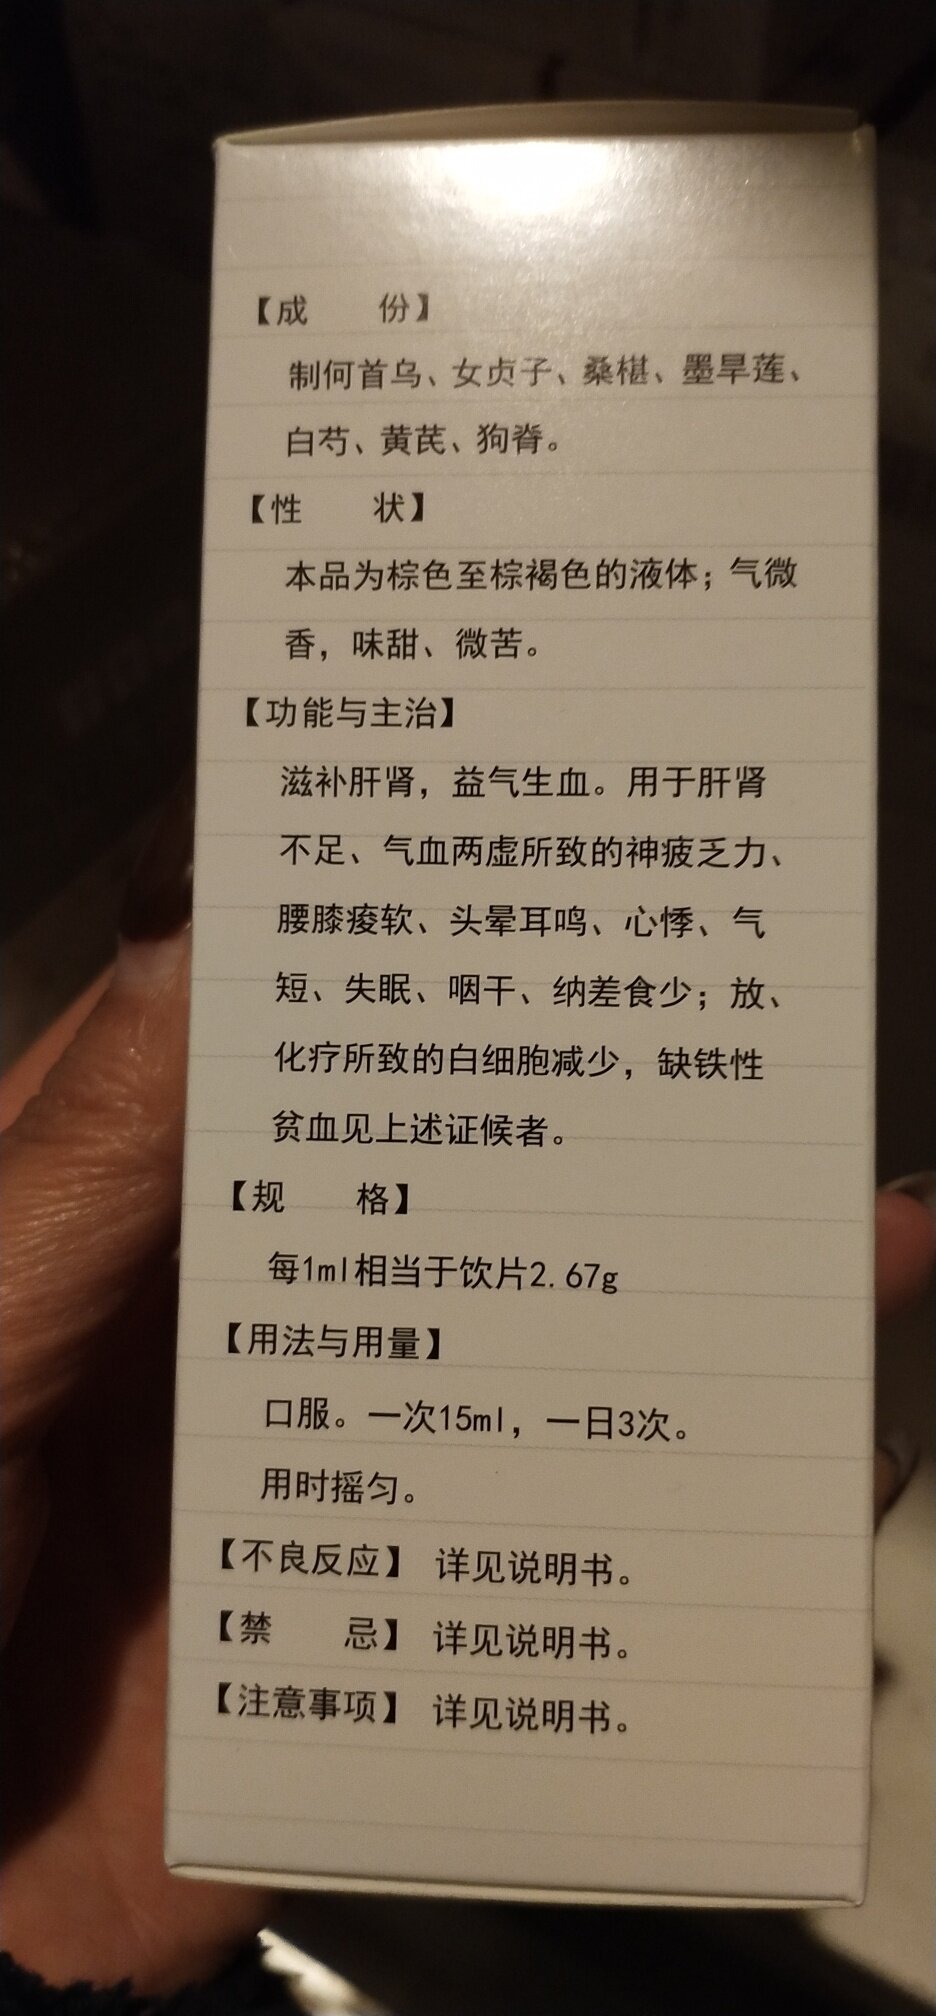 【成 份】
制何首乌、女贞子、桑椹、墨旱莲、
白芍、黄芪、狗脊。
【性 状】
本品为棕色至棕褐色的液体；气微
香，味甜、微苦。
【功能与主治】
滋补肝肾，益气生血。用于肝肾
不足、气血两虚所致的神疲乏力、
腰膝痠软、头晕耳鸣、心悸、气
短、失眠、咽干、纳差食少；放、
化疗所致的白细胞减少，缺铁性
贫血见上述证候者。
【规 格】
每1ml相当于饮片2.67g
【用法与用量】
口服。一次15ml，一日3次。
用时摇匀。
【不良反应】 详见说明书。
【禁 忌】 详见说明书。
【注意事项】 详见说明书。